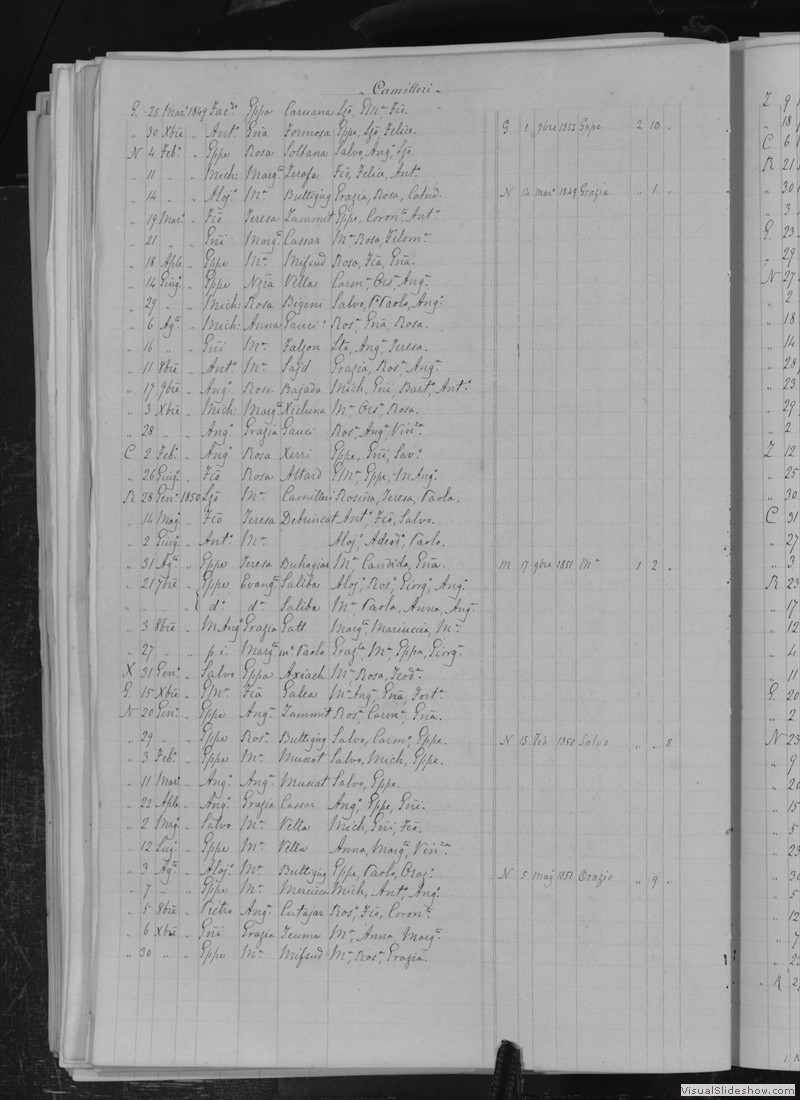 Camilleri
G. 25 Mar. 1849 Fac. Gppa Caruana Ljō, E/Mª Fiō.
„ 30 Xbre „ Antº Eña Formosa Gppe, Ljō, Felice. G 1 9bre 1852 Gppe 2 10 „
N 4 Febº „ Gppe Rosa Soltana Salvo, Angº Ljō.
„ 11 „ „ Mich: Margª Zerafa Fiō, Felice, Antº
„ 14 „ „ Alojº Mª Buttigieg Grazia, Rosa, N 14 marº 1849 Grazia „ 1 „
„ 19 Marº „ Fiō Teresa Zammit Gppe, Coronª, Antº
„ 21 „ „ Eñi Margª Cassar Mª Rosa, Filomª
„ 18 Aple „ Gppe Mª Mifsud Rosa, Fiā, Eña.
„ 14 Giugº „ Gppe Nzia Vella Carmª, Orsª, Angª
„ 29 „ „ Mich: Rosa Bigeni Salvo, P Paolo, Angº
„ 6 Agº „ Mich: Anna Gauci Rosª, Eña, Rosa.
„ 16 „ „ Eñi Mª Falzon Angª, Teresa.
„ 11 8bre „ Antº Mª Sajd Grazia, Rosª, Angª
„ 17 9bre „ Angº Rosa Bajada Mich, Eñi, Bartº, Antº
„ 3 Xbre „ Mich: Margª Xicluna Mª Orsª, Rosa.
„ 28 „ „ Angº Grazia Gauci Rosª, Angª, Vinzª
C 2 Febº „ Angº Rosa Xerri Gppe, Eñi, Savª
„ 26 Giugº „ Fiō Rosa Attard G/Mª, Gppe, M Angº
R 28 Genº 1850 Ljō Mª Camilleri Rosina, Teresa, Paola.
„ 14 Magº „ Fiō Teresa Debrincat Antº, Fiō, Salvo.
„ 2 Giugº „ Antº Mª Alojº, Adeodº, Paolo.
„ 31 Agº „ Gppe Teresa Buhagiar Mª Candida, Eña. M 17 9bre 1851 Mª 1 2 „
„ 21 7bre „ Gppe Evangª Saliba Alojº, Rosª, Giorgº, Angº
„ „ „ „ dº dª Saliba Mª Paola, Anna, Angª
„ 3 8bre „ M Angº Grazia Gatt Margª, Mariuccia, Mª
„ 27 „ „ p. i. Margª mª Paolo Grazia Mª, Gppa, Giorgª
X 31 Genº „ Salvo Gppa Axiach Mª, Rosa, Teodª
G. 15 Xbre „ G/Mª Fiā Galea Mª Angª, Eña, Fortª
N 20 Genº „ Gppe Angª Zammit Rosª, Carmª, Eña.
„ 29 „ „ Gppe Rosª Buttigieg Salvo, Carmº, Gppe. N 15 Feb 1850 Salvo „ „ 8
„ 3 Febº „ Gppe Mª Muscat Salvo, Mich, Gppe.
„ 11 Marº „ Angº Angª Muscat Salvo, Gppe.
„ 22 Aple „ Angº Grazia Cassar Angº, Gppe, Eñi.
„ 2 Magº „ Salvo Mª Vella Mich, Eñi, Fiō.
„ 12 Lugº „ Gppe Mª Vella Anna, Margª, Vinzª
„ 3 Agº „ Alojº Mª Buttigieg Gppe, Paolo, Orazº N 5 magº 1851 Orazio „ 9 „
„ 7 „ „ Gppe Mª Mercieca Mich, Antº, Angº
„ 5 8bre „ Pietro Angª Cutajar Rosª, Fiō, Coronª
„ 6 Xbre „ Eñi Grazia Teuma Mª, Anna, Margª
„ 30 „ „ Gppe Mª Mifsud Mª, Rosª, Grazia.
Z 9
„ 18
C 6
R 21
„ 30
„ 3
G. 23
„ 29
N 27
„ 2
„ 18
„ 14
„ 28
„ 23
„ 29
„ 2
Z 12
„ 25
„ 30
C 31
„ 27
„ 3
R 23
„ 17
„ 12
„ 4
„ 11
G. 20
„ 2
N 23
„ 9
„ 20
„ 15
„ 5
„ 23
„ 30
„ 5
„ 12
„ 7
„ 23
R 2
VisualSlideshow.com